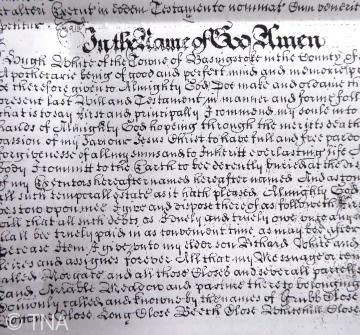 alter Exetut in eodem Testamento nominat Sum venerit
In the Name of God Amen
I Hugh White of the Towne of Basingstoke in the County of
Apothecarie being of good and perfect mind and memorie
be therefore given to Almighty God Doe make and ordaine this
present Last Will and Testament in manner and forme foll
that is to say first and principally I commend my soule into
hands of Almighty God hopeing through the meritts death
passion of my Saviour Jesus Christ to have full and free pardon
forgivenesse of all my sinns and to Inherit everlasting life
Body I committ to the Earth to be decently buried at the
of my Executors hereafter named And as touch
all such temporall Estate as it hath pleased Almighty God
bestow upon mee I give and dispose thereof as followeth first
will that all such debts as I duely and truely owe
shall bee truely paid in as convenient time as may bee after
decease Item I give unto my elder son Richard White and
heires and assignes forever All that my Messuage or ten
called Norgate and all those Closes and severall parcells
Land Arrable Meadow and pasture there to belonging
comonly called and knowne by the names of Grubb Close
Close Long Close Beech Close Whitehill Close
© TNA